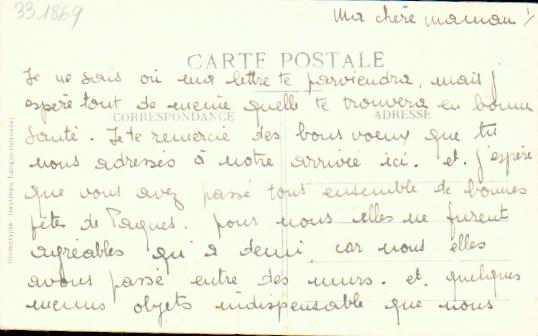 33.1869
Ma chère maman!
CARTE POSTALE
Je ne sais où ma lettre te parviendra, mais j'
espère tout de meme quelle te trouvera en bonne
CORRESPONDANCE
ADRESSE
santé. Je te remercie des bons voeux que tu
nous adresses à notre arrivée ici. et. j'espère
que vous avez passé tous ensemble de bonnes
fêtes de Paques. pour nous elles ne furent
agréables qu'à demi, car nous elles
avons passé entre des murs. et. quelques
menus objets indispensable que nous
Phototypie